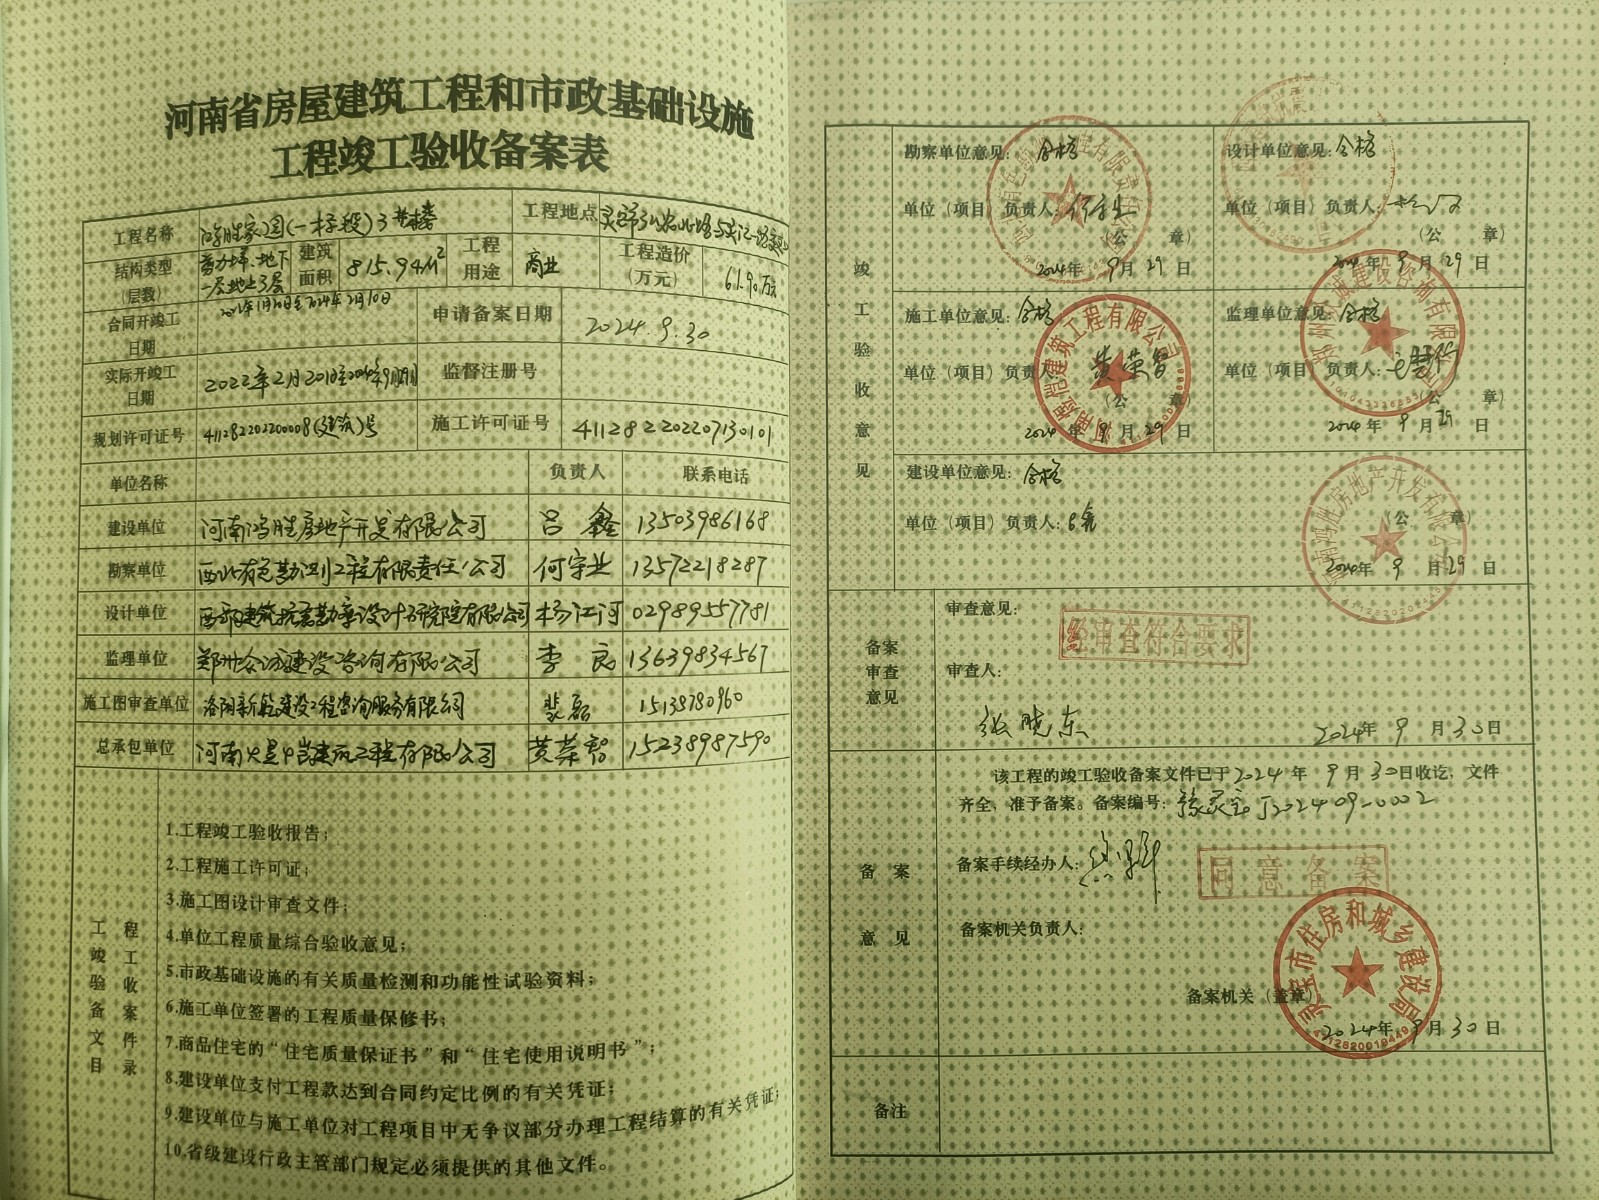 河南省房屋建筑工程和市政基础设施
工程竣工验收备案表
工程名称 鸿胜家园(一标段)3#楼 工程地点
结构类型(层数) 剪力墙、地下一层地上3层 建筑面积 815.94M² 工程用途 商业 工程造价(万元)
合同开竣工日期 申请备案日期 2024.9.30
实际开竣工日期 2022年2月20日至 监督注册号
规划许可证号 411282202200008(建筑)号 施工许可证号 411282202207130101
单位名称 负责人 联系电话
建设单位 河南鸿胜房地产开发有限公司 吕鑫 13503986168
勘察单位 西北有色勘测工程有限责任公司 何宇业 13572218287
设计单位 西部建筑抗震勘察设计研究院有限公司 杨江河 02989557781
监理单位 郑州众诚建设咨询有限公司 李良 13639834567
施工图审查单位 洛阳新乾建设工程咨询服务有限公司 裴磊 15138780960
总承包单位 黄荣智 15238987590
工程竣工验收备案文件目录
1.工程竣工验收报告;
2.工程施工许可证;
3.施工图设计审查文件;
4.单位工程质量综合验收意见;
5.市政基础设施的有关质量检测和功能性试验资料;
6.施工单位签署的工程质量保修书;
7.商品住宅的“住宅质量保证书”和“住宅使用说明书”;
8.建设单位支付工程款达到合同约定比例的有关凭证;
9.建设单位与施工单位对工程项目中无争议部分办理工程结算的有关凭证;
10.省级建设行政主管部门规定必须提供的其他文件。
竣工验收意见
勘察单位意见: 合格
单位(项目)负责人:
(公 章)
2024年 9月 29日
设计单位意见: 合格
单位(项目)负责人:
(公 章)
2024年 9月 29日
施工单位意见: 合格
单位(项目)负责人: 黄荣智
(公 章)
2024年 9月 29日
监理单位意见: 合格
单位(项目)负责人:
(公 章)
2024年 9月 29日
建设单位意见: 合格
单位(项目)负责人: 吕鑫
(公 章)
2024年 9月 29日
备案审查意见
审查意见:
经审查符合要求
审查人:
张晓东
2024年 9月 30日
备案意见
该工程的竣工验收备案文件已于2024年 9月 30日收讫,文件
齐全,准予备案。备案编号: 豫灵宝J202409-0002
备案手续经办人:
同意备案
备案机关负责人:
灵宝市住房和城乡建设局
备案机关(盖章)
2024年 9月 30日
备注